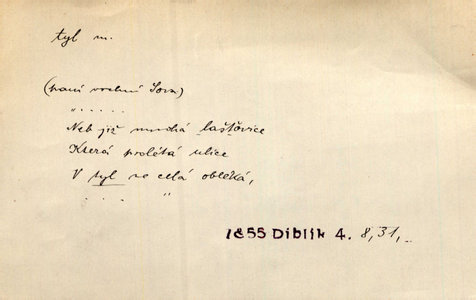 tyl m.
(paní Sova)
"......
Neb již modrá laštovice
Která prolétá ulice
V tyl se celá obléká,
.... "
1855 Diblík 4. 8,31,..